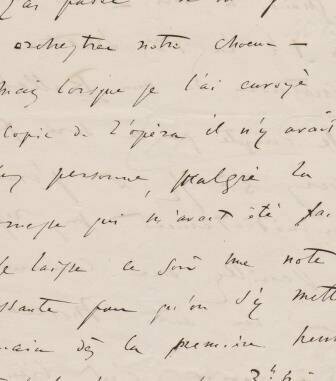 j'ai passé
orchestrer notre choeur —
mais lorsque je l'ai envoyé
copie de l'opéra il n'y avait
personne, malgré la
messe qui m'avait été fai
laisse ce soir une note
ssante pour qu'on s'y mett
main dès la première heur